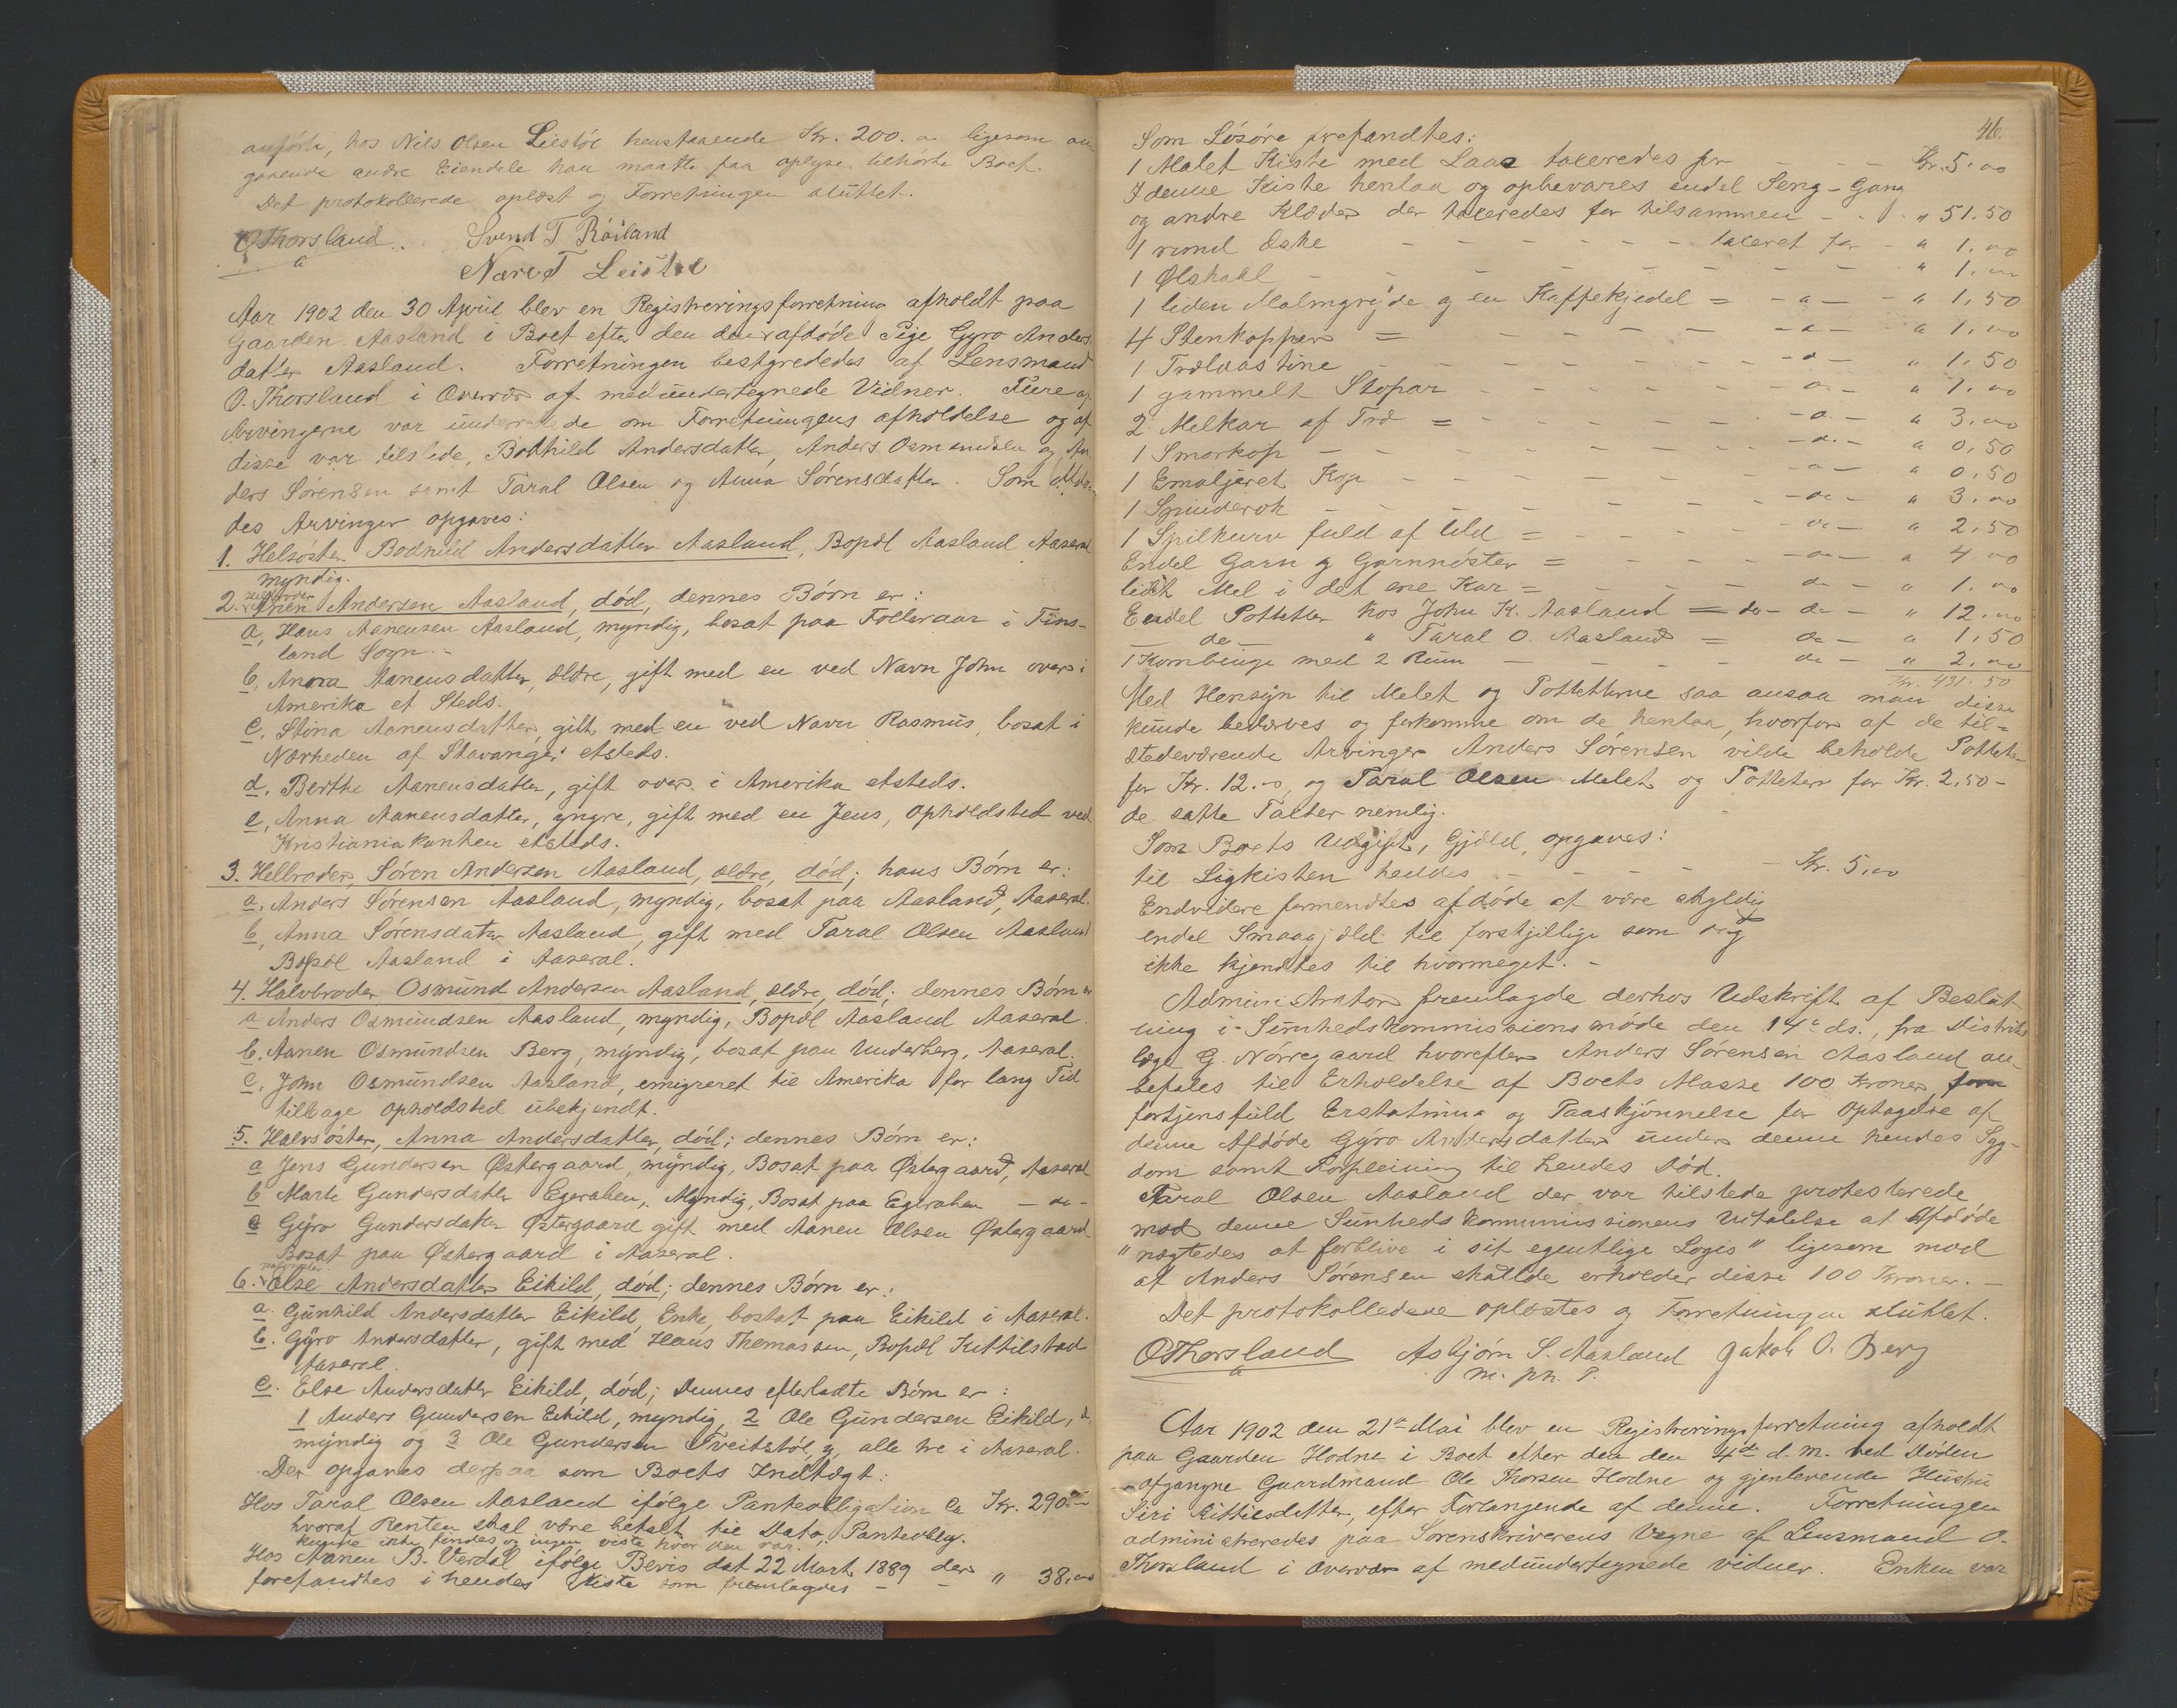 anførte, hos Nils Olsen Leistøl henstaaende Kr. 200.00 ligesom an-
gaaende andre Eiendele han maatte faa oplyse tilhørte Boet.
Det protokollerede oplæst og Forretningen sluttet.
O Thorsland. Svend T Røiland
Nære T Leistøl
Aar 1902 den 30 April blev en Registreringsforretning afholdt paa
Gaarden Aasland i Boet efter den der afdøde Pige Gyro Anders-
datter Aasland. Forretningen bestyrededes af Lensmand
O. Thorsland i Overvær af medundertegnede Vidner. Flere af
Arvingerne var underrettede om Forretningens afholdelse og af
disse var tilstede, Bothild Andersdatter, Anders Osmundsen og An-
ders Sørensen samt Taral Olsen og Anna Sørensdatter. Som Afdø-
des Arvinger opgaves:
1. Helsøster Bodhild Andersdatter Aasland, Bopæl Aasland Aaseral
myndig.
2. Aanen Andersen Aasland, død, dennes Børn er:
a, Hans Aanensen Aasland, myndig, bosat paa Folleraas i Fins-
land Sogn.-
b, Anna Aanensdatter, ældre, gift med en ved Navn John over i
Amerika et Steds.
c, Stina Aanensdatter, gift med en ved Navn Rasmus, bosat i
Nærheden af Stavanger etsteds.
d. Berthe Aanensdatter, gift over i Amerika etsteds.
e, Anna Aanensdatter, yngre, gift med en Jens, Opholdsted ved
Kristianiakanten etsteds.
3. Helbroder, Søren Andersen Aasland, ældre, død; hans Børn er:
a. Anders Sørensen Aasland, myndig, bosat paa Aasland, Aaseral.
b, Anna Sørensdatter Aasland, gift med Taral Olsen Aasland
Bopæl Aasland i Aaseral.
4. Halvbroder Osmund Andersen Aasland, ældre, død; dennes Børn er
a Anders Osmundsen Aasland, myndig, Bopæl Aasland Aaseral.
b. Aanen Osmundsen Berg, myndig, bosat paa Underberg, Aaseral.
c. John Osmundsen Aasland, emigreret til Amerika for lang Tid
tilbage Opholdsted ubekjendt.
5. Halvsøster, Anna Andersdatter, død; dennes Børn er:
a Jens Gundersen Østergaard, myndig, Bosat paa Østergaard, Aaseral
b Marte Gundersdatter Egerahen, Myndig, Bosat paa Egerahen - do -
c Gyro Gundersdatter Østergaard gift med Aanen Olsen Østergaard
Bosat paa Østergaard i Aaseral.
6. Else Andersdatter Eikild, død; dennes Børn er:
a. Gunhild Andersdatter Eikild, Enke, bostat paa Eikild i Aaseral.
b. Gyro Andersdatter, gift med Hans Themassen, Bopæl Kittilstad
Aaseral.
c. Else Andersdatter Eikild, død; Dennes efterladte Børn er:
1 Anders Gundersen Eikild, myndig, 2 Ole Gundersen Eikild,
myndig og 3 Ole Gundersen Tveitstøl, alle tre i Aaseral.
Der opgaves derpaa som Boets Indtægt:
Hos Taral Olsen Aasland ifølge Pantobligation Ca Kr. 290.-
hvoraf Renten skal være betalt til Dato, Pantoblig.
kunde ikke findes og ingen viste hvor den var.
Hos Aanen B. Verdal ifølge Bevis dat 22 Mart. 1889 der
forefandtes i hendes Kiste som fremlagdes - - " 38,00
46.
Som Løsøre forefandtes:
1 Malet Kiste med Laas taxeredes for - - - Kr. 5.00
I denne Kiste henlaa og opbevares endel Seng-Gang
og andre Klæder der taxeredes for tilsammen - - " 51.50
1 rund Eske - - - - - taxeret for - " 1,00
1 Ølskaal - - - - - " 1,00
1 liden Malmgryde og en Kaffekjedel = - " - " 1,50
4 Stenkopper = - - - - " - " 1,00
1 Trælaastine - - - - - " 1.50
1 gammelt Stopar - - - - " 1.00
2 Melkar af Træ = - - - - " 3.00
1 Smørkop - - - - - " 0,50
1 Emaljeret Kop - - - - - " 0.50
1 Spinderok - - - - - " 3.00
1 Spilkurv fuld af Uld = - - - " 2,50
Endel Garn og Garnnøster = - - - " 4.00
lidt Mel i det ene Kar = - - do - " 1.00
Endel Potteter hos John K. Aasland = do - do - " 12.00
- do - " Taral O. Aasland = do - " 1,50
1 Kornbinge med 2 Rum - - - - do - " 2.00
Kr. 431.50
Med Hensyn til Melet og Potteterne saa ansaa man disse
kunde bederves og forkomme om de henlaa, hvorfor af de til-
stedeværende Arvinger Anders Sørensen vilde beholde Potteter
for Kr. 12.00, og Taral Olsen Melet og Potteter for Kr. 2,50 -
de satte Takster nemlig.
Som Boets Udgift, Gjæld, opgaves:
til Ligkisten hendes - - - - Kr. 5,00
Endvidere formendtes afdøde at være skyldig
endel Smaagjæld til forskjellige som dog
ikke kjendtes til hvormeget. -
Administrator fremlagde derhos Udskrift af Beslut-
ning i Sunhedskommissionsmøde den 14de ds., fra Distrikts-
læge G. Nørregaard hvorefter Anders Sørensen Aasland an-
befales til Erholdelse af Boets Masse 100 Kroner
fortjensfuld Erstatning og Paaskjønnelse for Optagelse af
denne Afdøde Gyro Andersdatter under denne hendes Syg-
dom samt Forpleining til hendes Død.
Taral Olsen Aasland der var tilstede protesterede
mod denne Sunhedskommissionens Uttalelse at Afdøde
"nægtedes at forblive i sit egentlige Logis" ligesom mod
at Anders Sørensen skullde erholder disse 100 Kroner. -
Det protokolledere oplæstes og Forretningen sluttet.
O Thorsland Asbjørn S. Aasland Jakob O. Berg
m. p. P.
Aar 1902 den 21de Mai blev en Registreringsforretning afholdt
paa Gaarden Hodne i Boet efter den den 4de d. m. ved Døden
afgangne Gaardmand Ole Thorsen Hodne og gjenlevende Hustru
Siri Kittilsdatter, efter Forlangende af denne. Forretningen
administreredes paa Sorenskriverens Vegne af Lensmand O.
Thorsland i Overvær af medundertegnede vidner. Enken var